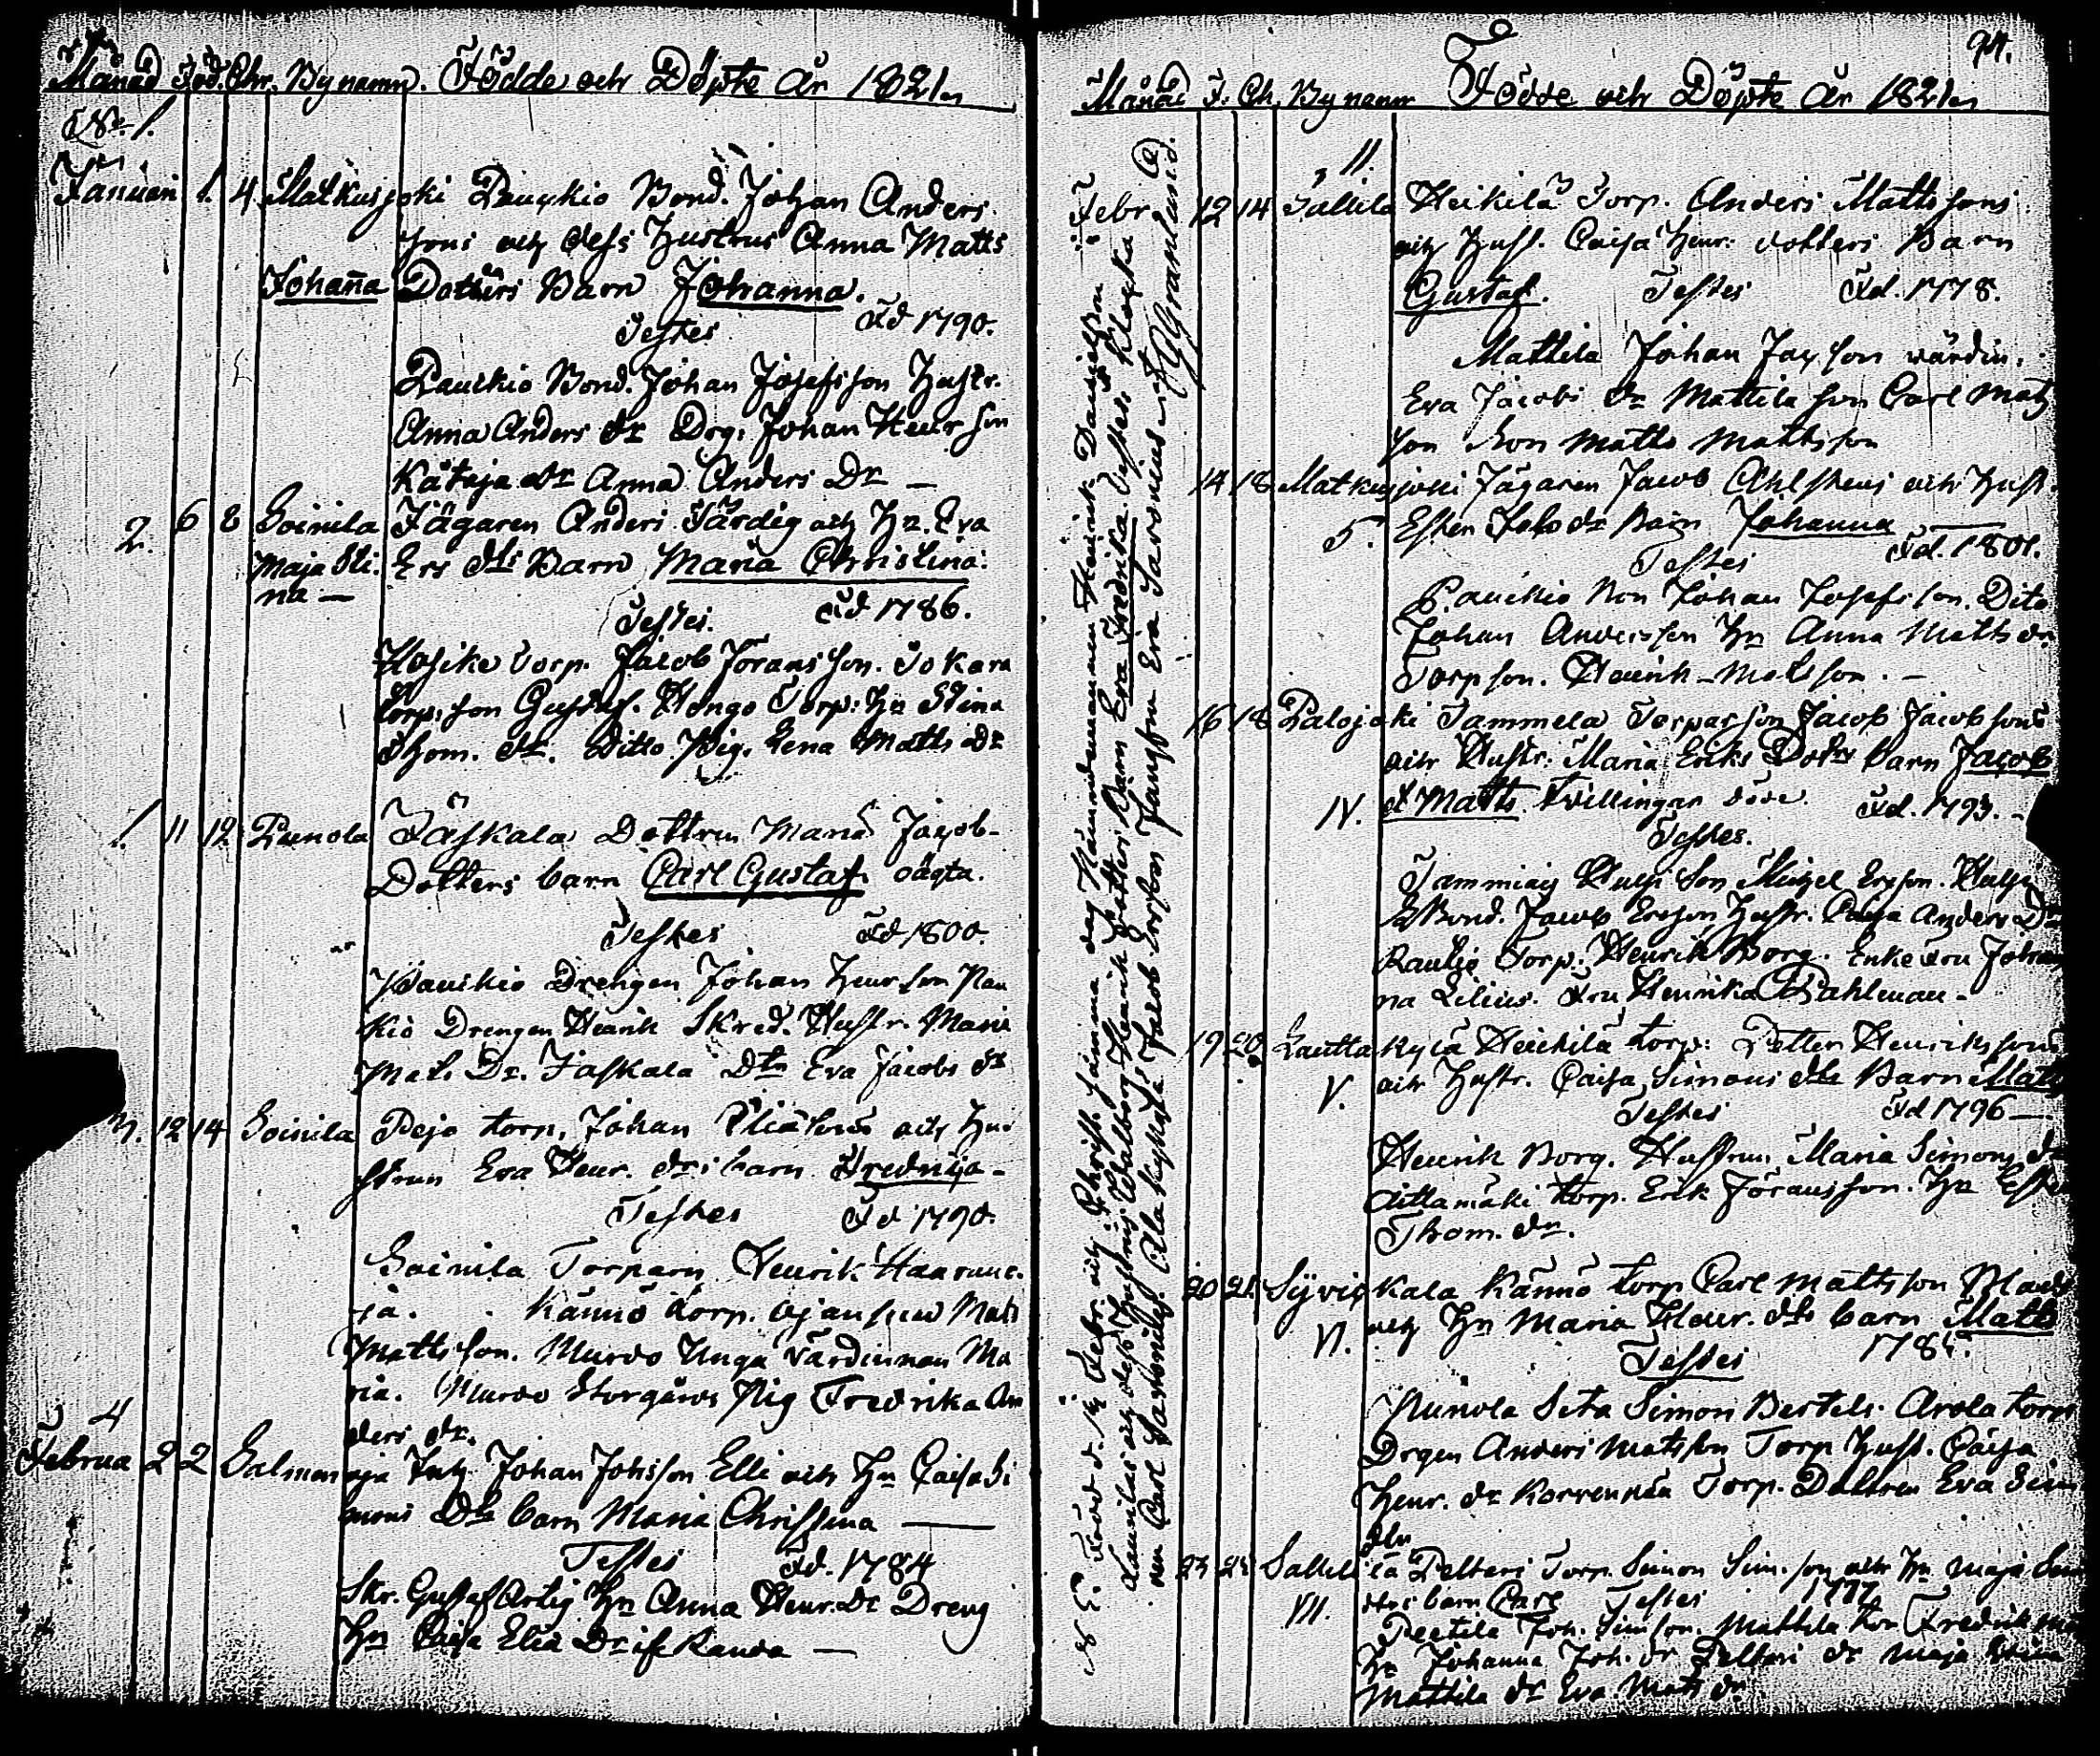 Månad Föd. Chr. Bynamn. Födde och Döpte År 1821.
No 1.
Januari 1. 4. Matkusjoki Pauckio Bond. Johan Anders
sons och dess hustrus Anna Matts
Johanna Dotters Barn Johanna.
Testes Föd 1790.
Pauckio Bond. Johan Josefsson Hustr.
Anna Anders dr Drg. Johan Henr son
Kätaja dr Anna Anders Dr —
2. 6 8 Soinila Jägaren Anders Färdig och Hu. Eva
Maja Sti- Ers dtrs Barn Maria Christina.
na —
Testes. Föd 1786.
Hosike Torp. Jacob Göransson. Jokara
Torp. son Gustaf. Hongo Torp. Hu Stina
Thom. dr. Ditto Pig. Lena Matts dr
1. 11 12 Punola Jaskala Dottren Maria Jacob-
Dotters barn Carl Gustaf oägta.
Testes Föd 1800.
Pauckio Drengen Johan Henr son Pau
kio Drengen Henrik Skred. Hustr. Maria
Mats Dr. Jaskala Dtr Eva Jacobs dr
3. 12 14 Soinila Pejo torp. Johan Eliæsons och Hu-
strun Eva Henr. drs barn Fredrika —
Testes Föd 1790.
Soinila Torparn Henrik Haarane.
ja. Kännö torp. Mats
Matts son. Murdo Unga Värdinnan Ma
ria. Murdo Storgårds Pig Fredrika An
ders dr.
4
Februa 2 2 Salmen oja Johan Johsson Elli och Hu Caisa Si
mons Dtrs barn Maria Christina —
Testes Föd. 1784
Skr. Gustaf Artig Hu Anna Henr. Dr Dreng
Hu Caisa Elia Dr if Rauda —
94.
Månad F. Ch. Bynamn Födde och Döpte År 1821.
11.
Febr. 12 14 Sallila Heikilä Torp. Anders Mattssons
och Hust. Caisa Henr. dotters Barn
Gustaf. Testes Föd. 1778.
Mattila Johan Jacson värdin.
Eva Jacobs dr Mattila son Carl Mats
son Bon Matts Mattsson
14 18 Matkusjoki Jägaren Jacob Ahlstens och Hust.
5. Ester Jako dr Barn Johanna
Testes Föd. 1801.
Pauckio Bon Johan Josefsson. Dito
Johan Andersson Hu Anna Matts dr
Torpson. Henrik Matsson. —
16 18 Palojoki Tammela Torparson Jacob Jacobsons
och Hustr. Maria Eriks Dotrs barn Jacob
IV. & Matts Tvillingar döde. Föd. 1793. —
Testes.
Tammiais Huhti Son Michel Ersson. Huhti
Bond. Jacob Ersson Hustr. Caisa Anders Dr
Rautio Torp. Henrik Borg. Enkefru Johan
na Lilius. Fru Henrika Bahlman —
19 20 Lauttakylä Heikilä torp. Petter Henrikssons
V. och Hustr. Caisa Simons dtrs Barn Mats
Testes Föd 1796 —
Henrik Borg. Hustrun Maria Simons dr
Aittamäki torp. Erik Göransson. Hu Ester
Thom. dr.
20 21 Syvis kala Kännö torp Carl Mattsson
VI. och Hu Maria Henr. dtrs barn Matts
Testes
Nunola Seta Simon Bertels. Arola torp
Drgen Anders Matsson Torp Hust. Caisa
Henr. dr Korvenpää Torp. Dottren Eva Sim
dtr
23 25 Sallila Peltari Torp. Simon Sim. son och Hu Maja
VII. dtrs barn Carl Testes 1777
Peltila Joh. Simson. Mattila Bon Fredrik
Hu Johanna Joh. dr Peltari dr Maja Stina
Mattila dr Eva Mats dr
N E. Född d. Febr. och Christn. samma dag Nämndemannen Henrik Danielsson
Launilas och dess Hustrus Walborg Henrik Dotters Barn Eva Fredrika. Testes. Klocka
ren Carl Savonius. Ala kyhytä Jacob Ersson Jungfru Eva Savonius
Granlund.